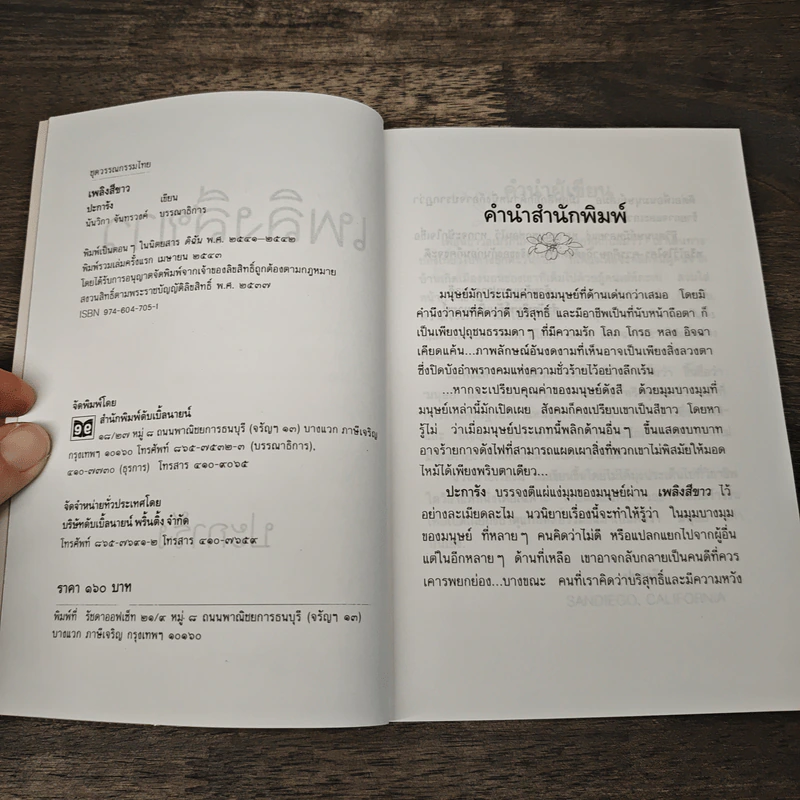 ชุดวรรณกรรมไทย
เพลิงสีขาว
ปะการัง เขียน
นันวิภา จันทรวงศ์ บรรณาธิการ
พิมพ์เป็นตอนๆ ในนิตยสาร ดิฉัน พ.ศ. ๒๕๔๑–๒๕๔๒
พิมพ์รวมเล่มครั้งแรก เมษายน ๒๕๔๓
โดยได้รับการอนุญาตจัดพิมพ์จากเจ้าของลิขสิทธิ์ถูกต้องตามกฎหมาย
สงวนสิทธิ์ตามพระราชบัญญัติลิขสิทธิ์ พ.ศ. ๒๕๓๗
ISBN 974-604-705-1
จัดพิมพ์โดย
สำนักพิมพ์ดับเบิ้ลนายน์
๑๘/๒๗ หมู่ ๘ ถนนพาณิชยการธนบุรี (จรัญฯ ๑๓) บางแวก ภาษีเจริญ
กรุงเทพฯ ๑๐๑๖๐ โทรศัพท์ ๘๖๕-๗๕๓๒-๓ (บรรณาธิการ),
๔๑๐-๗๗๓๐ (ธุรการ) โทรสาร ๔๑๐-๙๐๖๕
จัดจำหน่ายทั่วประเทศโดย
บริษัทดับเบิ้ลนายน์ พริ้นติ้ง จำกัด
โทรศัพท์ ๘๖๕-๗๖๙๑-๒ โทรสาร ๔๑๐-๗๖๕๙
ราคา ๑๖๐ บาท
พิมพ์ที่ รัชดาออฟเซ็ท ๒๑/๙ หมู่ ๘ ถนนพาณิชยการธนบุรี (จรัญฯ ๑๓)
บางแวก ภาษีเจริญ กรุงเทพฯ ๑๐๑๖๐
คำนำสำนักพิมพ์
มนุษย์มักประเมินค่าของมนุษย์ที่ด้านเด่นกว่าเสมอ โดยมิ
คำนึงว่าคนที่คิดว่าดี บริสุทธิ์ และมีอาชีพเป็นที่นับหน้าถือตา ก็
เป็นเพียงปุถุชนธรรมดาๆ ที่มีความรัก โลภ โกรธ หลง อิจฉา
เคียดแค้น...ภาพลักษณ์อันงดงามที่เห็นอาจเป็นเพียงสิ่งลวงตา
ซึ่งปิดบังอำพรางคมแห่งความชั่วร้ายไว้อย่างลึกเร้น
...หากจะเปรียบคุณค่าของมนุษย์ดังสี ด้วยมุมบางมุมที่
มนุษย์เหล่านี้มักเปิดเผย สังคมก็คงเปรียบเขาเป็นสีขาว โดยหา
รู้ไม่ ว่าเมื่อมนุษย์ประเภทนี้พลิกด้านอื่นๆ ขึ้นแสดงบทบาท
อาจร้ายกาจดังไฟที่สามารถแผดเผาสิ่งที่พวกเขาไม่พิสมัยให้มอด
ไหม้ได้เพียงพริบตาเดียว...
ปะการัง บรรจงตีแผ่แง่มุมของมนุษย์ผ่าน เพลิงสีขาว ไว้
อย่างละเมียดละไม นวนิยายเรื่องนี้จะทำให้รู้ว่า ในมุมบางมุม
ของมนุษย์ ที่หลายๆ คนคิดว่าไม่ดี หรือแปลกแยกไปจากผู้อื่น
แต่ในอีกหลายๆ ด้านที่เหลือ เขาอาจกลับกลายเป็นคนดีที่ควร
เคารพยกย่อง...บางขณะ คนที่เราคิดว่าบริสุทธิ์และมีความหวัง